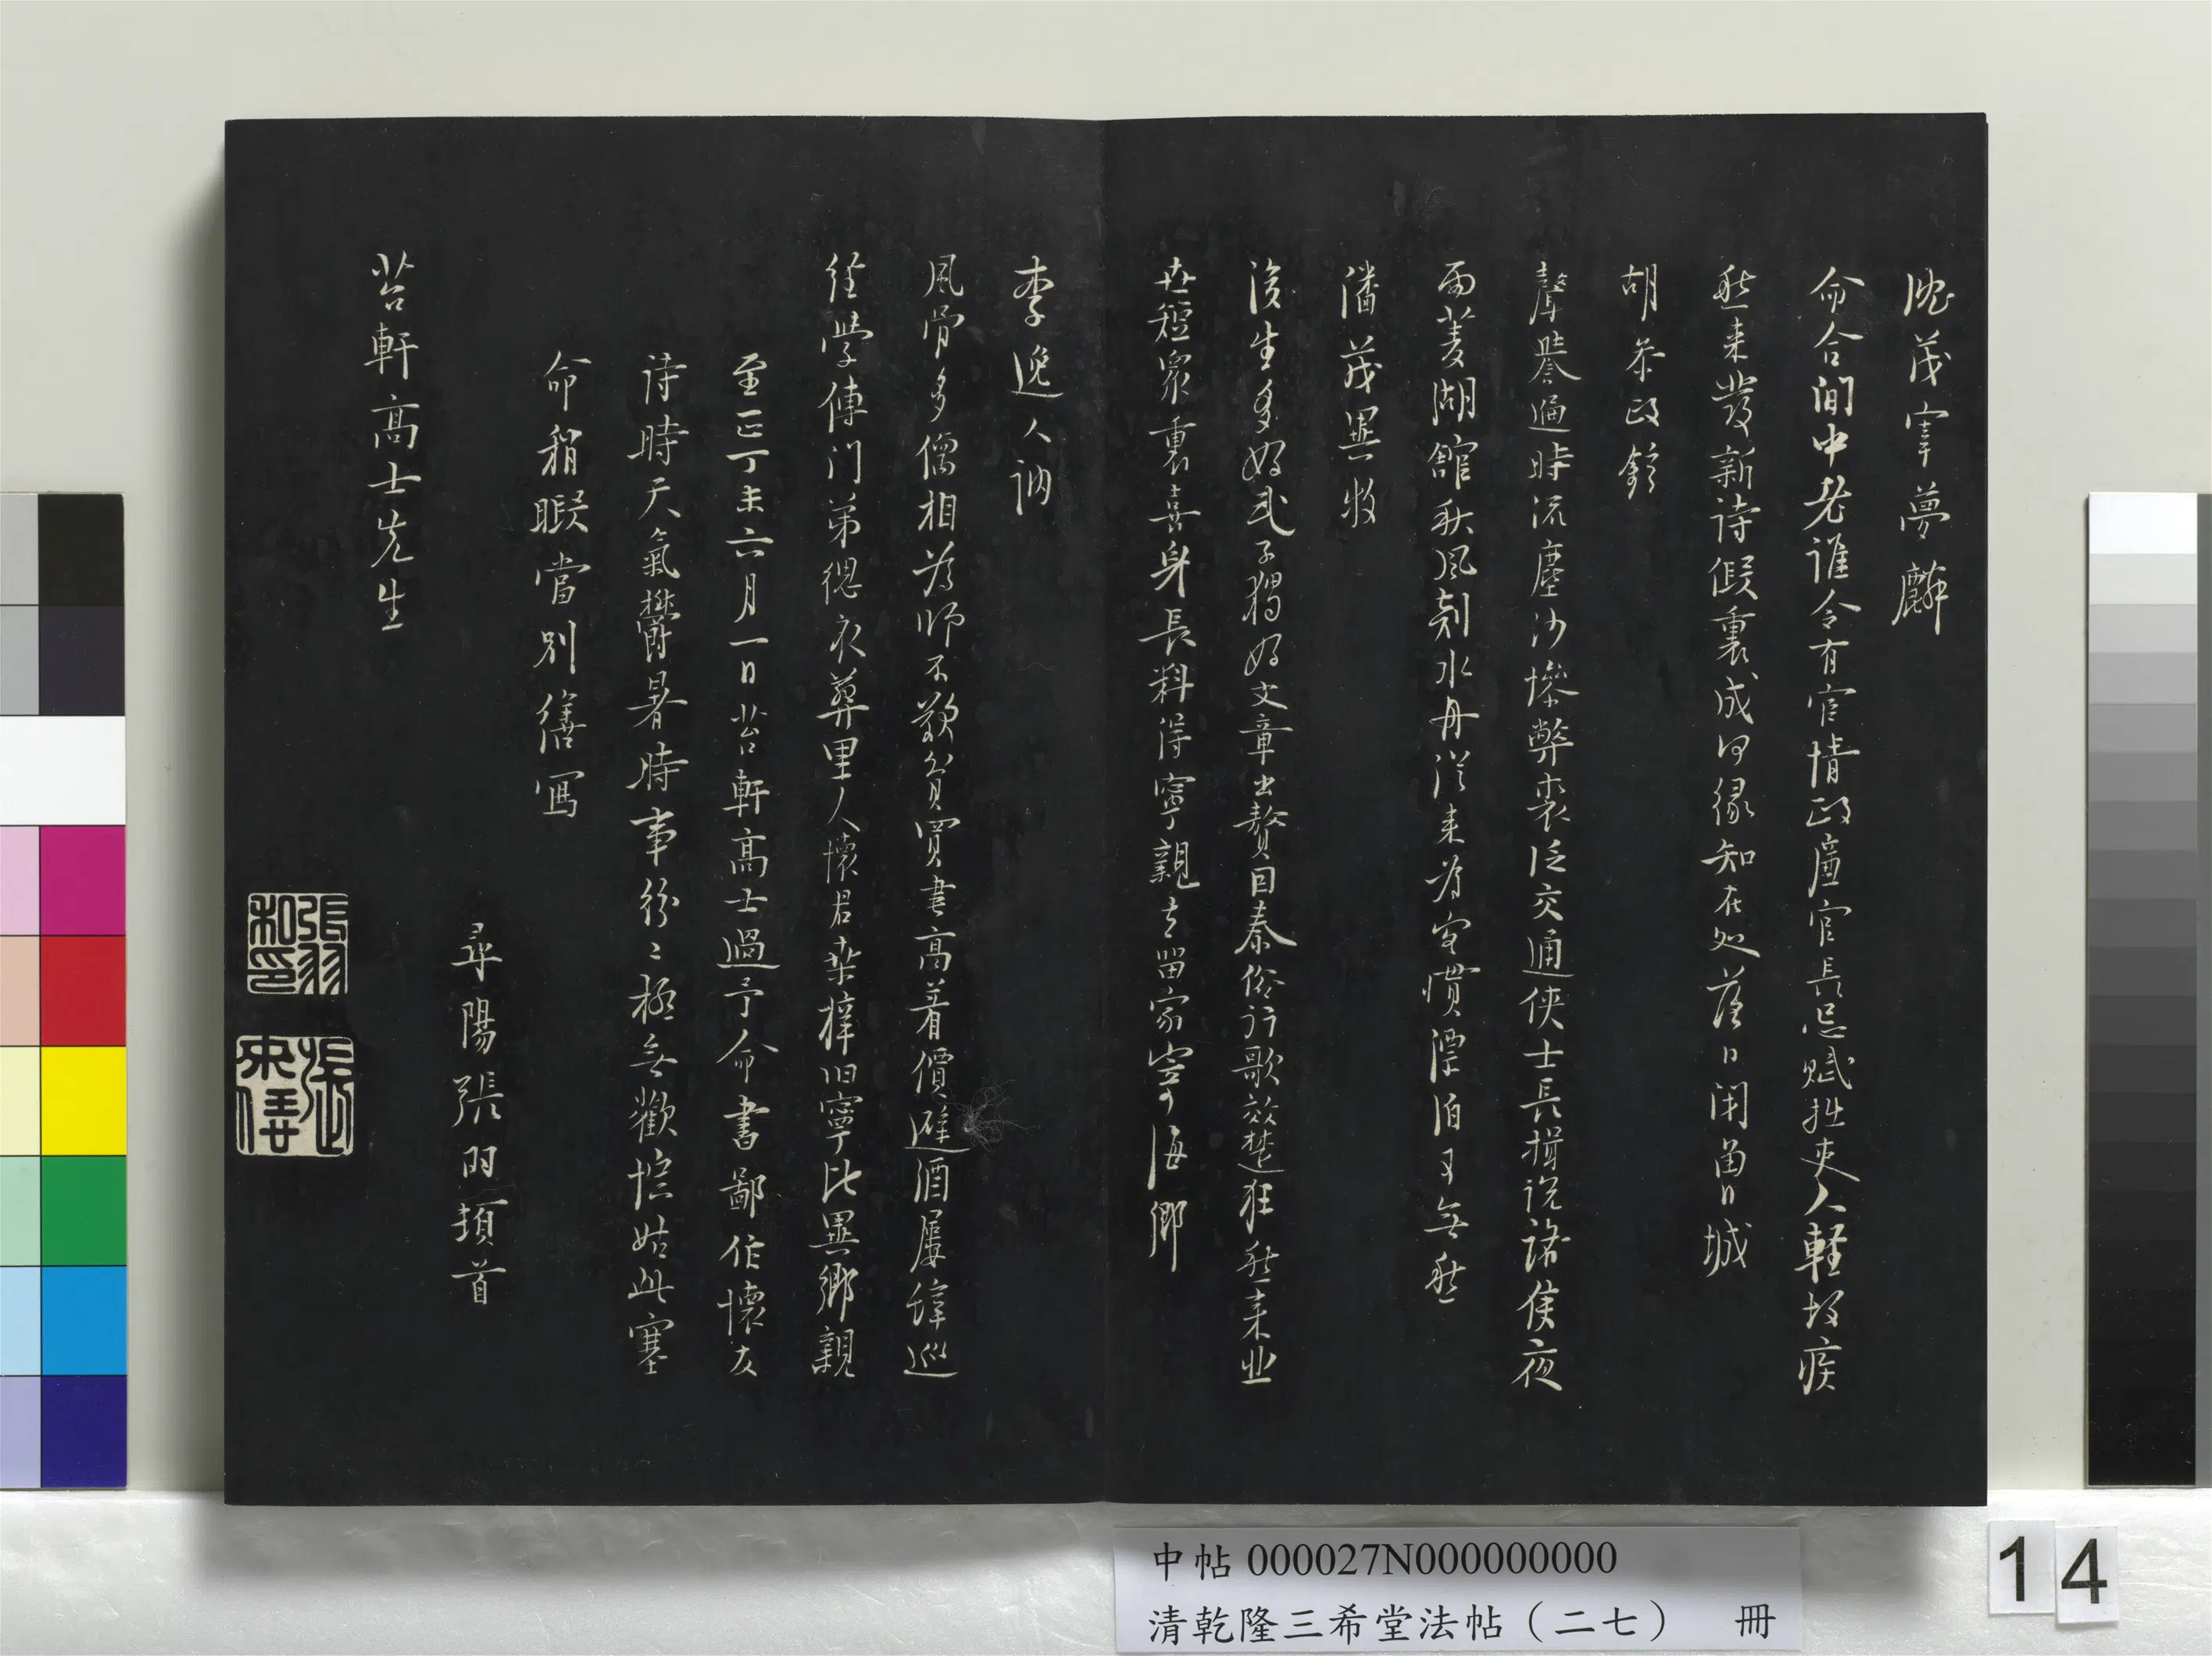 沈茂宰夢麟
命合間中老誰令有官情政廉官長忌賦拙吏人輕故疾
愁來發新詩假裏成何緣知在処落日閉菌城
胡參政鉉
聲譽逼時流塵沙塈弊裘泛交通俠士長揖説諸侯夜
雨菱湖館秋風剡水舟從來為客慣漂泊日無愁
潘茂異牧
後生多好武子獨好文章出贅因秦俗行歌效楚狂愁来业
在短衆裏喜身長料得寧親去留家寄海鄉
李逸人訥
風骨多僧相為師不歎貧買書高著價避酒屢緯巡
經學傳門弟緦衣葬里人懷君桑梓旧寧比異鄉親
至正丁未六月一日苕軒高士過予命書鄙作懷友
詩時天氣欝暑時事紛紛極無歡悰姑此塞
命稍暇當别繕寫
尋陽張羽頓首
苕軒高士先生
張羽
和印
張
來儀
中帖 000027N000000000
清乾隆三希堂法帖（二七） 冊
14